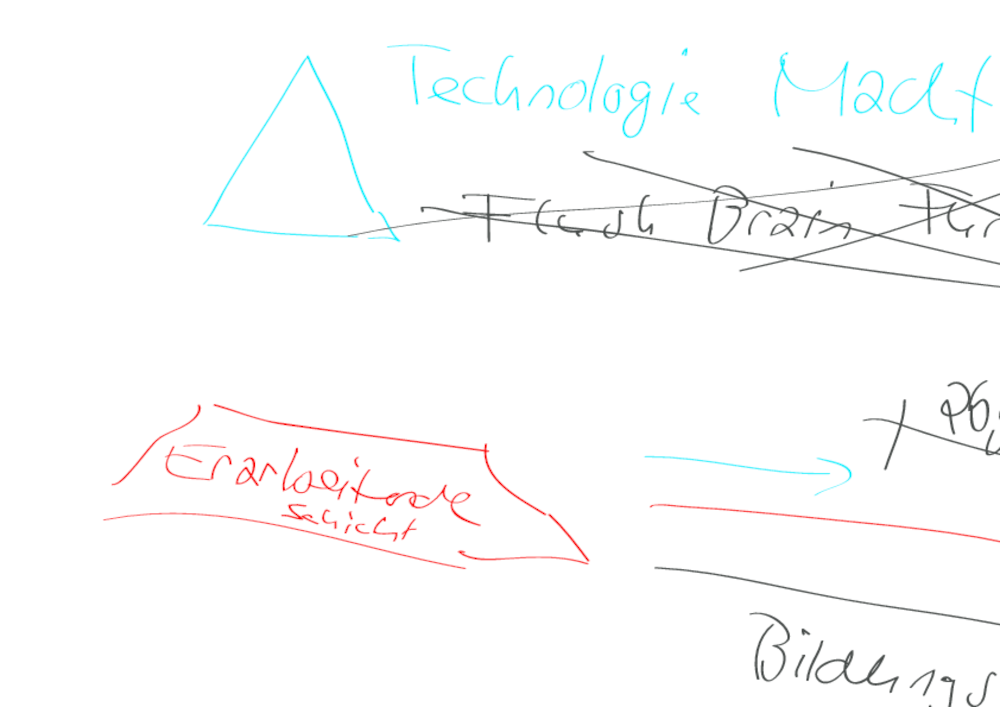 Technologie Macht
Flash Brain
Erarbeitende
Schicht
Bildungs